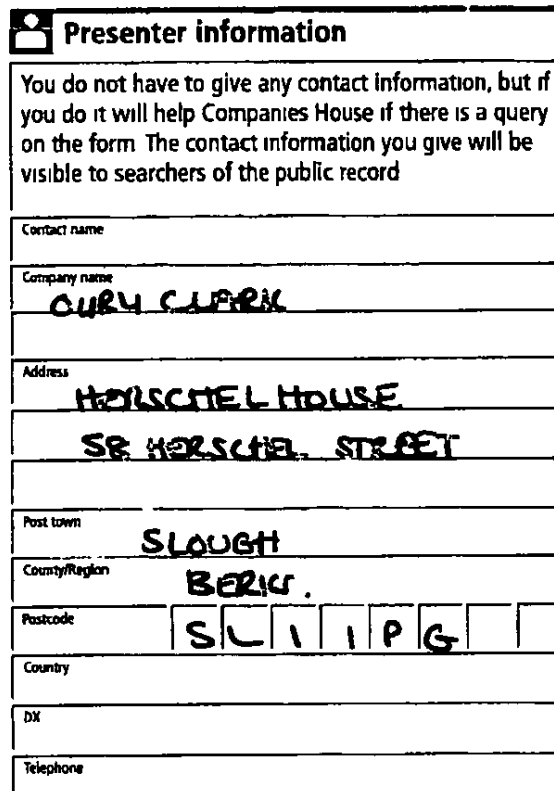 Presenter information
You do not have to give any contact information, but if
you do it will help Companies House if there is a query
on the form The contact information you give will be
visible to searchers of the public record
Contact name
Company name
OURY CLARK
Address
HERSCHEL HOUSE
58 HERSCHEL STREET
Post town
SLOUGH
County/Region
BERKS.
Postcode
SL1 1PG
Country
DX
Telephone